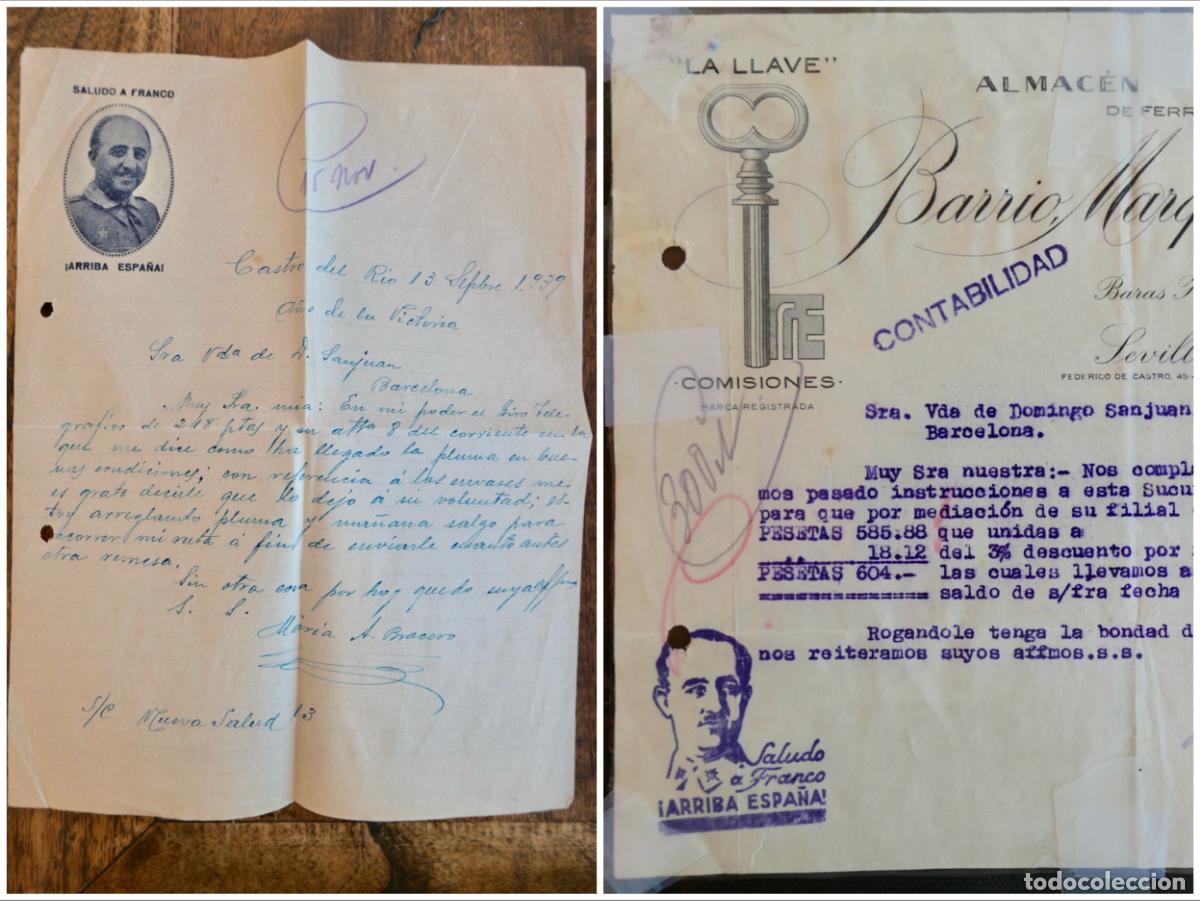 SALUDO A FRANCO
¡ARRIBA ESPAÑA!
15 Nov.
Castro del Rio 13 Sepbre 1.939
Año de la Victoria
Sra Vda de D. Sanjuan
Barcelona
Muy Sra. mia: En mi poder el Giro Tele-
grafico de 218 ptas y su atta 8 del corriente en la
que me dice como ha llegado la pluma en bue-
nas condiciones; con referencia á los envases me
es grato decirle que lo dejo á su voluntad; es-
toy arreglando pluma y mañana salgo para
recorrer mi ruta á fin de enviarle cuanto antes
otra remesa.
Sin otra cosa por hoy quedo suya
S. S.
Maria A. Bracero
S/C Nueva Salud 13
"LA LLAVE"
COMISIONES
MARCA REGISTRADA
ALMACÉN
DE FERR
Barrio, Marq
CONTABILIDAD
Baras
Sevill
FEDERICO DE CASTRO, 45
Sra. Vda de Domingo Sanjuan
Barcelona.
Muy Sra nuestra:- Nos compl
mos pasado instrucciones a esta Sucu
para que por mediación de su filial
PESETAS 585.88 que unidas a
18.12 del 3% descuento por
PESETAS 604.- las cuales llevamos a
saldo de s/fra fecha
Rogandole tenga la bondad d
nos reiteramos suyos affmos.s.s.
Saludo
á Franco
¡ARRIBA ESPAÑA!
todocoleccion